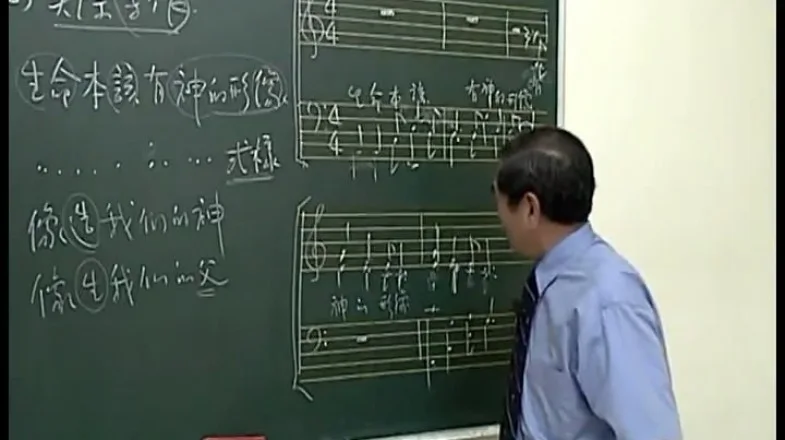 生命本該有神的形像
........式樣
像造我们的神
像生我们的父
4 4
生命本該 有神的形像
4 4
神的形像